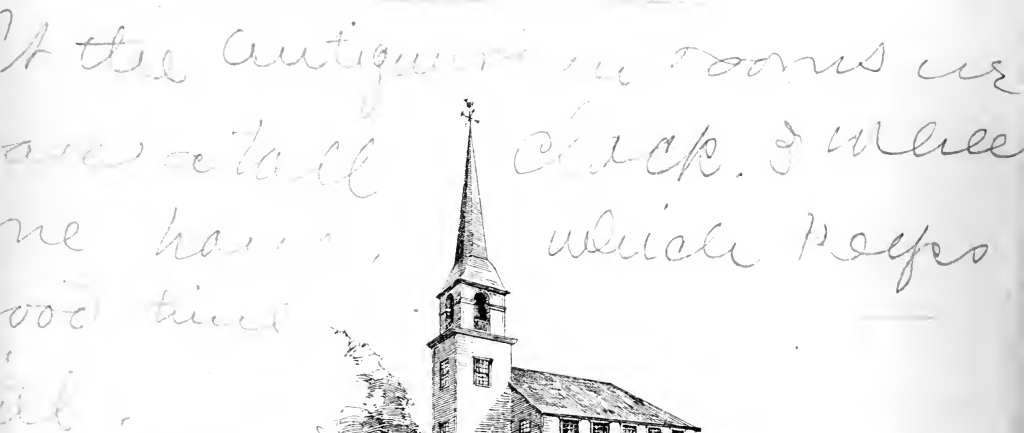 At the antiquarian rooms we
saw a tall clock. 3 wheel
one hand, which keeps
good time